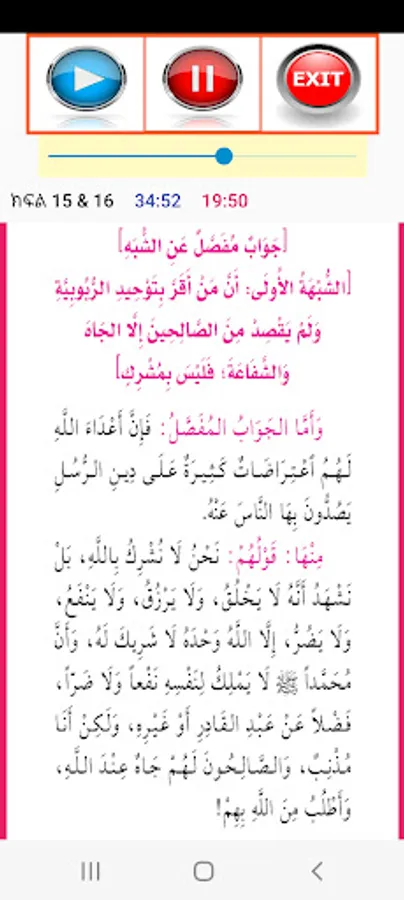 EXIT
ክፍል 15 & 16 34:52 19:50
[جَوَابٌ مُفَصَّلٌ عَنِ الشُّبَهِ]
[الشُّبْهَةُ الأُولَى: أَنَّ مَنْ أَقَرَّ بِتَوْحِيدِ الرُّبُوبِيَّةِ
وَلَمْ يَقْصِدْ مِنَ الصَّالِحِينَ إِلَّا الجَاهَ
وَالشَّفَاعَةَ؛ فَلَيْسَ بِمُشْرِكٍ]
وَأَمَّا الجَوَابُ المُفَصَّلُ: فَإِنَّ أَعْدَاءَ اللَّهِ
لَهُمُ ٱعْتِرَاضَاتٌ كَثِيرَةٌ عَلَى دِينِ الرُّسُلِ
يَصُدُّونَ بِهَا النَّاسَ عَنْهُ.
مِنْهَا: قَوْلُهُمْ: نَحْنُ لَا نُشْرِكُ بِاللَّهِ، بَلْ
نَشْهَدُ أَنَّهُ لَا يَخْلُقُ، وَلَا يَرْزُقُ، وَلَا يَنْفَعُ،
وَلَا يَضُرُّ، إِلَّا اللَّهُ وَحْدَهُ لَا شَرِيكَ لَهُ، وَأَنَّ
مُحَمَّداً ﷺ لَا يَمْلِكُ لِنَفْسِهِ نَفْعاً وَلَا ضَرّاً،
فَضْلاً عَنْ عَبْدِ القَادِرِ أَوْ غَيْرِهِ، وَلَكِنْ أَنَا
مُذْنِبٌ، وَالصَّالِحُونَ لَهُمْ جَاهٌ عِنْدَ اللَّهِ،
وَأَطْلُبُ مِنَ اللَّهِ بِهِمْ!